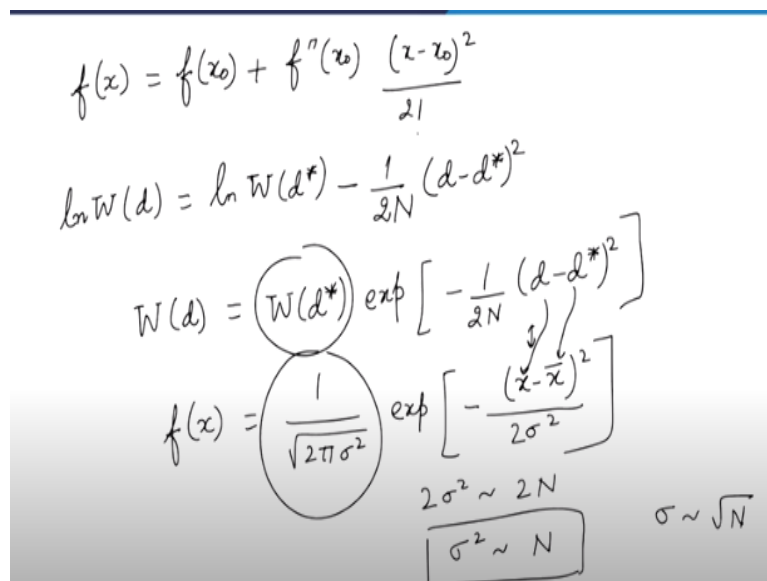 f(x) = f(x₀) + f"(x₀) (x-x₀)²/2!
ln W(d) = ln W(d*) - 1/2N (d-d*)²
W(d) = W(d*) exp [ - 1/2N (d-d*)² ]
f(x) = 1/√2πσ² exp [ - (x-x̄)²/2σ² ]
2σ² ~ 2N
σ² ~ N σ ~ √N